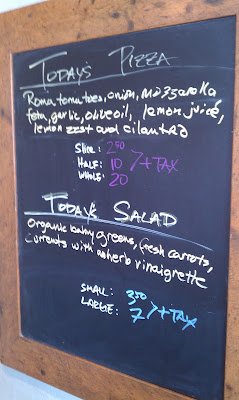 TODAY'S PIZZA
Roma tomatoes, onion, Mozzarella
feta, garlic, olive oil, lemon juice,
lemon zest and cilantro
SLICE: 2.50
HALF: 10 > + TAX
WHOLE: 20
TODAY'S SALAD
Organic baby greens, fresh carrots,
currents with an herb vinaigrette
SMALL: 3.50
LARGE: 7 > + TAX